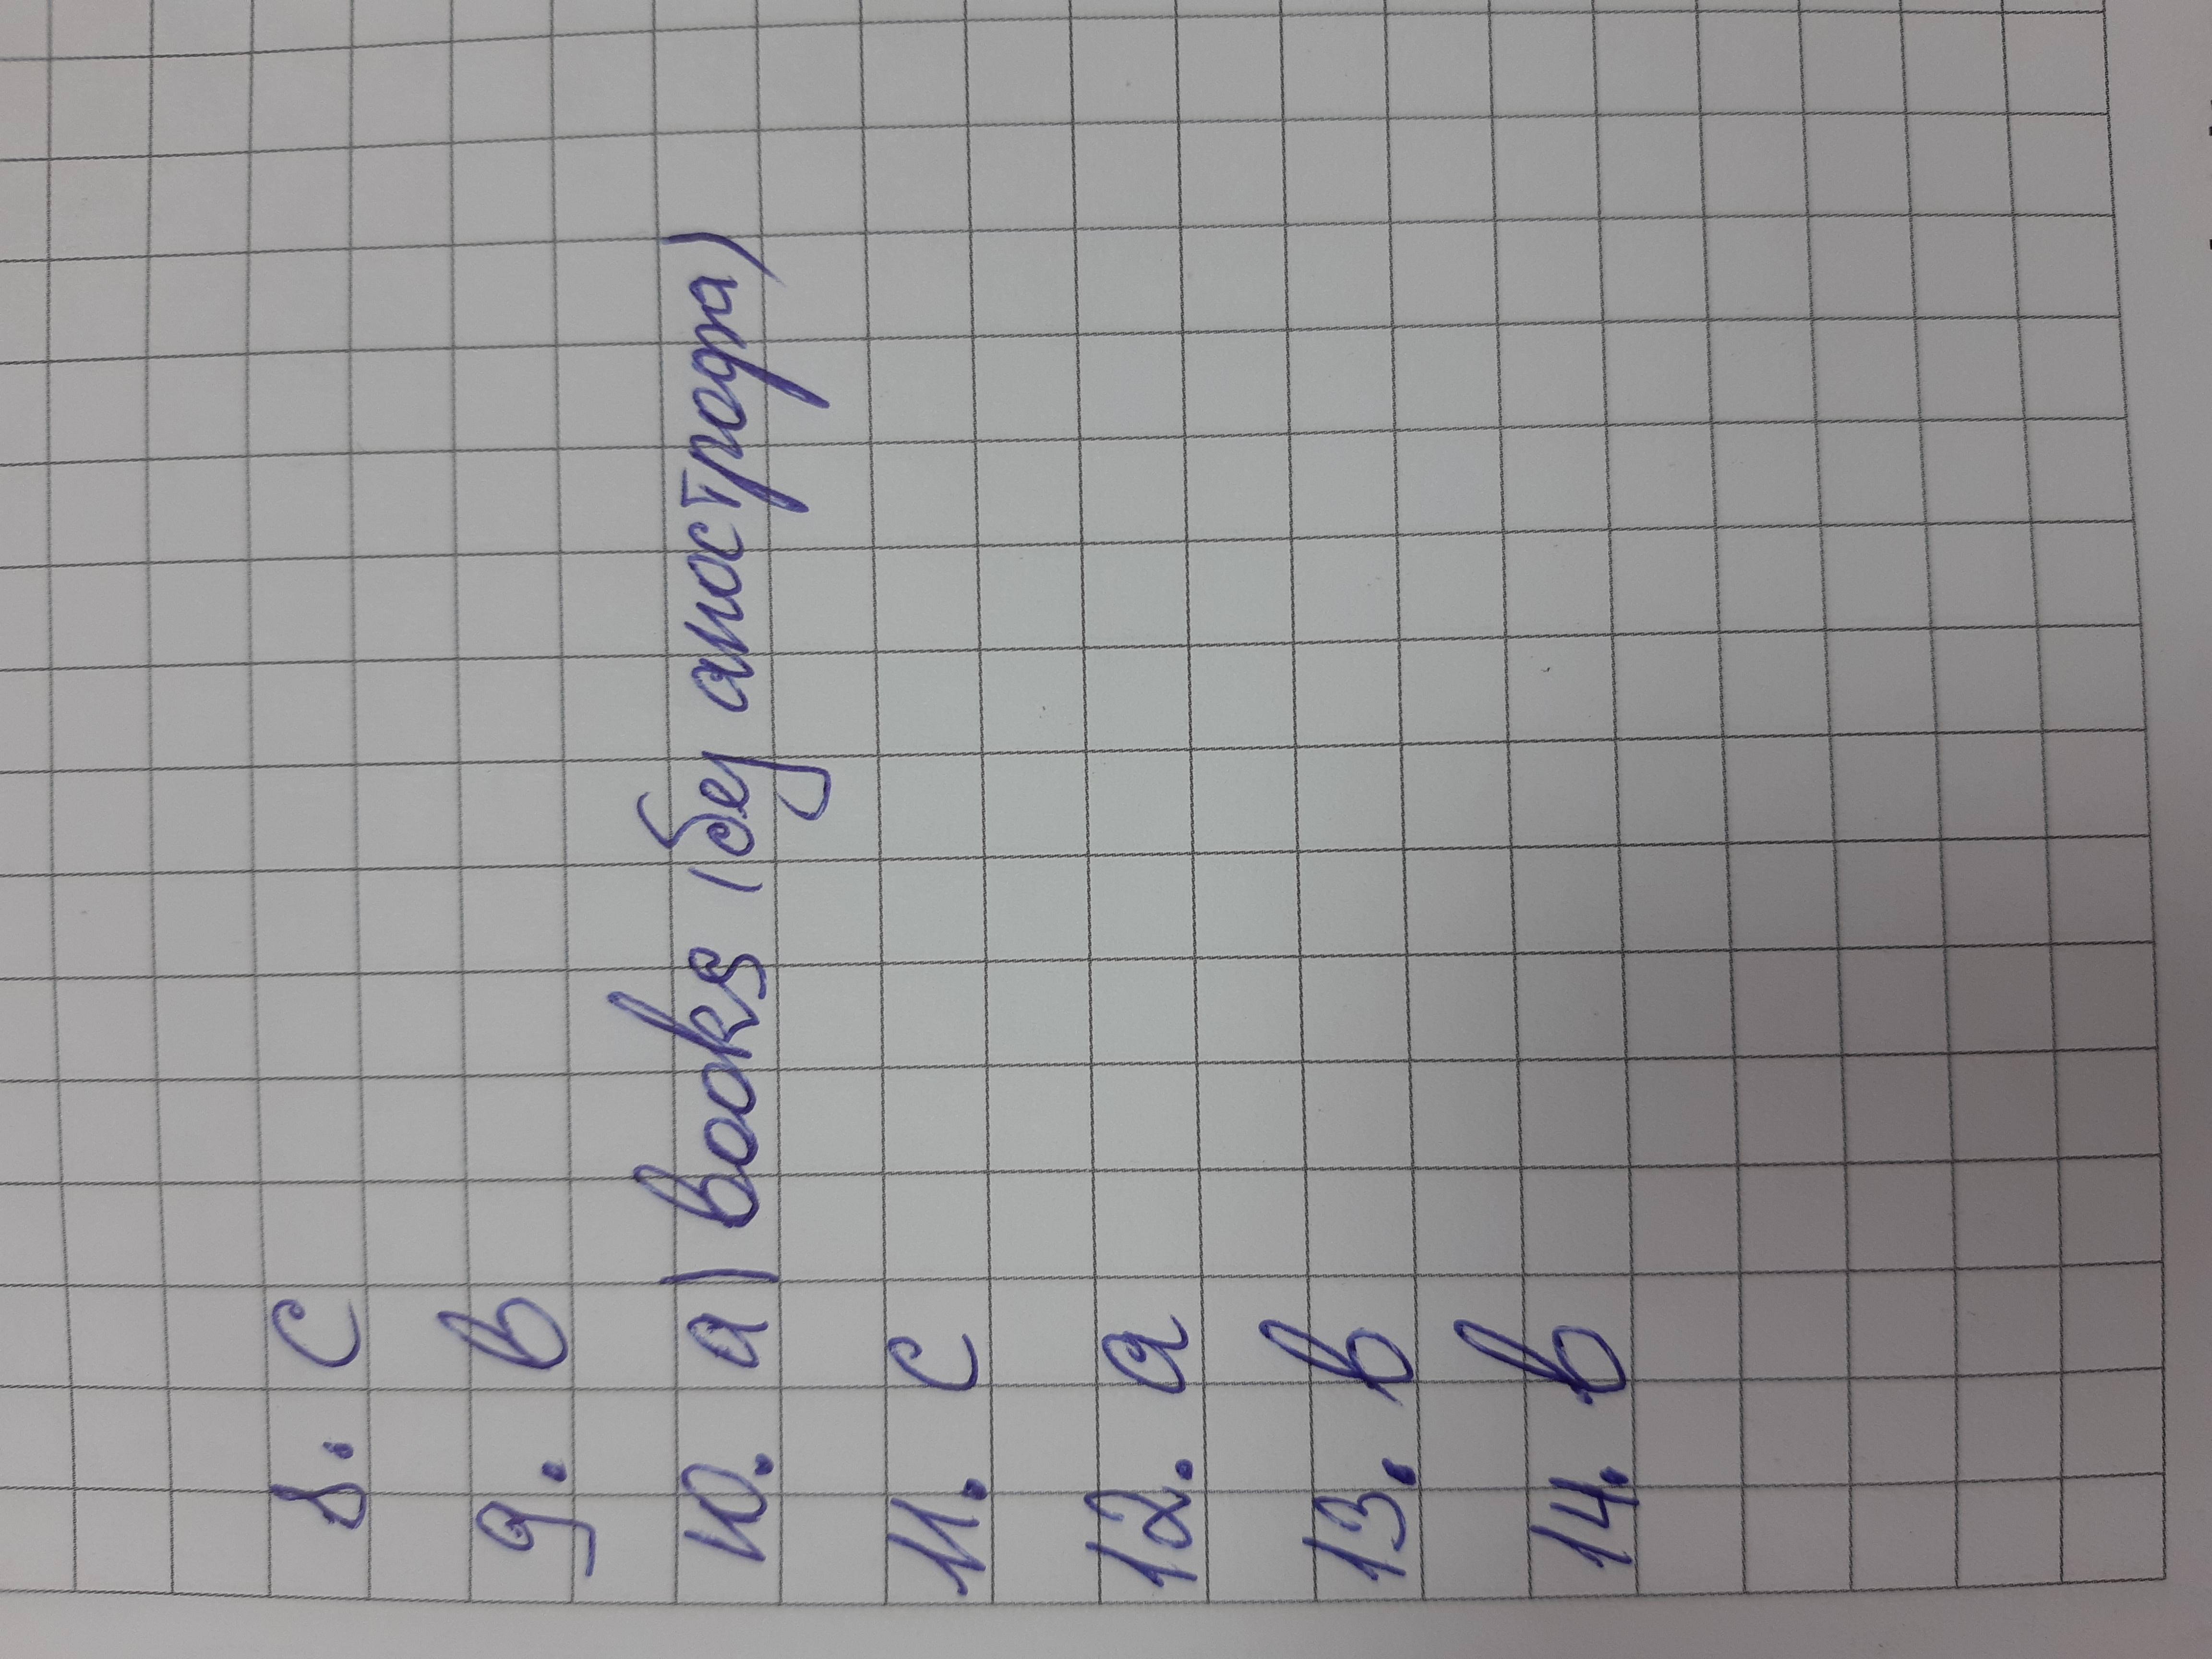 8. c
9. b
10. a) books (без апострофа)
11. c
12. a
13. b
14. b